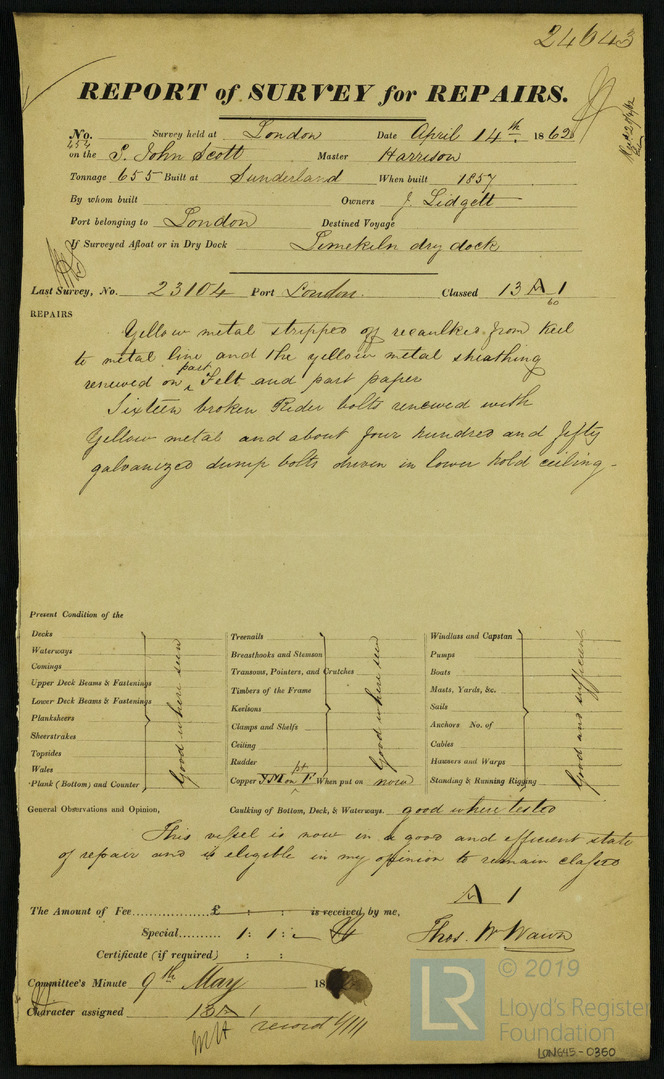 24643
REPORT of SURVEY for REPAIRS.
No. 454 Survey held at London Date April 14th. 1862
on the S. John Scott Master Harrison
Tonnage 655 Built at Sunderland When built 1857
By whom built Owners J. Lidgett
Port belonging to London Destined Voyage
If Surveyed Afloat or in Dry Dock Limekiln dry dock
Last Survey, No. 23104 Port London. Classed 13 A 1
60
REPAIRS
Yellow metal stripped off recaulked from Keel
to metal line and the yellow metal sheathing
renewed on part Felt and part paper
Sixteen broken Rider bolts renewed with
Yellow metal and about four hundred and fifty
galvanized dump bolts driven in lower hold ceiling -
Present Condition of the
Decks
Waterways
Comings
Upper Deck Beams & Fastenings
Lower Deck Beams & Fastenings
Planksheers
Sheerstrakes
Topsides
Wales
Plank (Bottom) and Counter
Good where seen
Treenails
Breasthooks and Stemson
Transoms, Pointers, and Crutches
Timbers of the Frame
Keelsons
Clamps and Shelfs
Ceiling
Rudder
Copper YM on pt F When put on now
Good where seen
Windlass and Capstan
Pumps
Boats
Masts, Yards, &c.
Sails
Anchors No. of
Cables
Hawsers and Warps
Standing & Running Rigging
Good and sufficient
General Observations and Opinion, Caulking of Bottom, Deck, & Waterways. good where tested
This vessel is now in a good and efficient state
of repair and is eligible in my opinion to remain classed
A 1
The Amount of Fee................£ : : is received by me,
Special.......... 1 : 1 : - Thos. W Wawn
Certificate (if required) : :
Committee's Minute 9th May 18
Character assigned 13 A 1
record
© 2019
LR Lloyd's Register
Foundation
LON645-0360